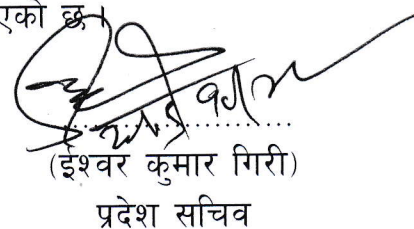 एको छ।
(ईश्वर कुमार गिरी)
प्रदेश सचिव